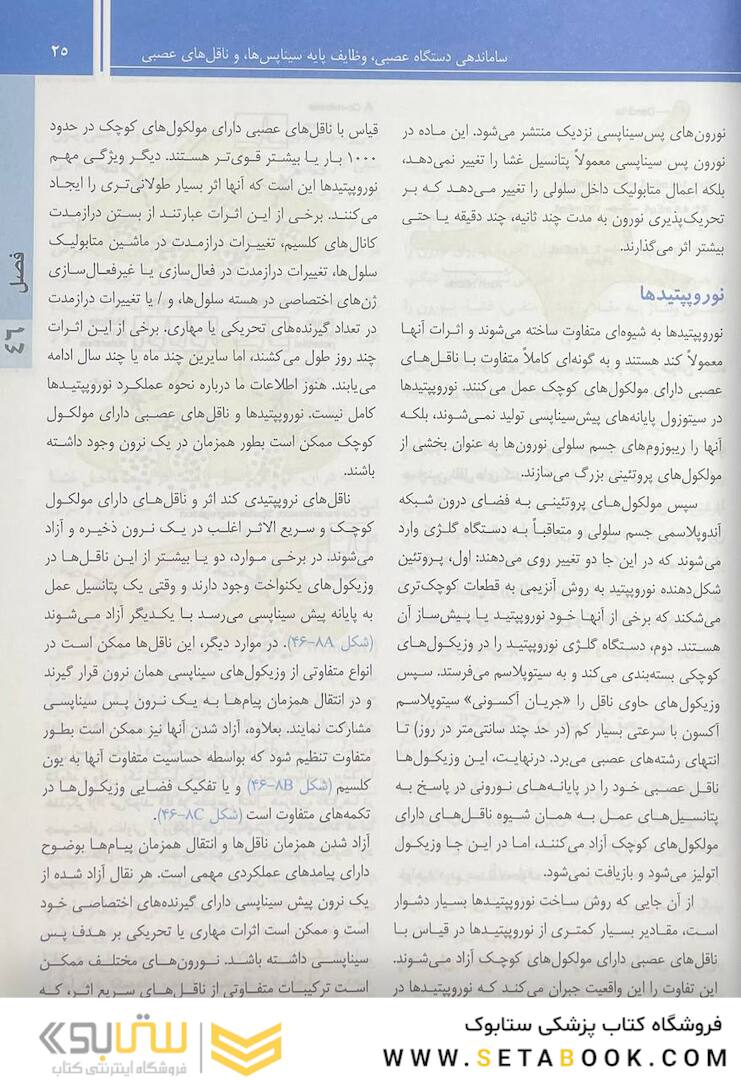 ۲۵
ساماندهی دستگاه عصبی، وظایف پایه سیناپس‌ها، و ناقل‌های عصبی
نورون‌های پس‌سیناپسی نزدیک منتشر می‌شود. این ماده در
نورون پس سیناپسی معمولاً پتانسیل غشا را تغییر نمی‌دهد،
بلکه اعمال متابولیک داخل سلولی را تغییر می‌دهد که بر
تحریک‌پذیری نورون به مدت چند ثانیه، چند دقیقه یا حتی
بیشتر اثر می‌گذارند.
نوروپپتیدها
نوروپپتیدها به شیوه‌ای متفاوت ساخته می‌شوند و اثرات آنها
معمولاً کند هستند و به گونه‌ای کاملاً متفاوت با ناقل‌های
عصبی دارای مولکول‌های کوچک عمل می‌کنند. نوروپپتیدها
در سیتوزول پایانه‌های پیش‌سیناپسی تولید نمی‌شوند، بلکه
آنها را ریبوزوم‌های جسم سلولی نورون‌ها به عنوان بخشی از
مولکول‌های پروتئینی بزرگ می‌سازند.
سپس مولکول‌های پروتئینی به فضای درون شبکه
آندوپلاسمی جسم سلولی و متعاقباً به دستگاه گلژی وارد
می‌شوند که در این جا دو تغییر روی می‌دهند: اول، پروتئین
شکل‌دهنده نوروپپتید به روش آنزیمی به قطعات کوچک‌تری
می‌شکند که برخی از آنها خود نوروپپتید یا پیش‌ساز آن
هستند. دوم، دستگاه گلژی نوروپپتید را در وزیکول‌های
کوچکی بسته‌بندی می‌کند و به سیتوپلاسم می‌فرستد. سپس
وزیکول‌های حاوی ناقل را «جریان آکسونی» سیتوپلاسم
آکسون با سرعتی بسیار کم (در حد چند سانتی‌متر در روز) تا
انتهای رشته‌های عصبی می‌برد. درنهایت، این وزیکول‌ها
ناقل عصبی خود را در پایانه‌های نورونی در پاسخ به
پتانسیل‌های عمل به همان شیوه ناقل‌های دارای
مولکول‌های کوچک آزاد می‌کنند، اما در این جا وزیکول
اتولیز می‌شود و بازیافت نمی‌شود.
از آن جایی که روش ساخت نوروپپتیدها بسیار دشوار
است، مقادیر بسیار کمتری از نوروپپتیدها در قیاس با
ناقل‌های عصبی دارای مولکول‌های کوچک آزاد می‌شوند.
این تفاوت را این واقعیت جبران می‌کند که نوروپپتیدها در
قیاس با ناقل‌های عصبی دارای مولکول‌های کوچک در حدود
۱۰۰۰ بار یا بیشتر قوی‌تر هستند. دیگر ویژگی مهم
نوروپپتیدها این است که آنها اثر بسیار طولانی‌تری را ایجاد
می‌کنند. برخی از این اثرات عبارتند از بستن درازمدت
کانال‌های کلسیم، تغییرات درازمدت در ماشین متابولیک
سلول‌ها، تغییرات درازمدت در فعال‌سازی یا غیرفعال‌سازی
ژن‌های اختصاصی در هسته سلول‌ها، و / یا تغییرات درازمدت
در تعداد گیرنده‌های تحریکی یا مهاری. برخی از این اثرات
چند روز طول می‌کشند، اما سایرین چند ماه یا چند سال ادامه
می‌یابند. هنوز اطلاعات ما درباره نحوه عملکرد نوروپپتیدها
کامل نیست. نوروپپتیدها و ناقل‌های عصبی دارای مولکول
کوچک ممکن است بطور همزمان در یک نرون وجود داشته
باشند.
ناقل‌های نروپپتیدی کند اثر و ناقل‌های دارای مولکول
کوچک و سریع الاثر اغلب در یک نرون ذخیره و آزاد
می‌شوند. در برخی موارد، دو یا بیشتر از این ناقل‌ها در
وزیکول‌های یکنواخت وجود دارند و وقتی یک پتانسیل عمل
به پایانه پیش سیناپسی می‌رسد با یکدیگر آزاد می‌شوند
(شکل ۴۶-۸A). در موارد دیگر، این ناقل‌ها ممکن است در
انواع متفاوتی از وزیکول‌های سیناپسی همان نرون قرار گیرند
و در انتقال همزمان پیام‌ها به یک نرون پس سیناپسی
مشارکت نمایند. بعلاوه، آزاد شدن آنها نیز ممکن است بطور
متفاوت تنظیم شود که بواسطه حساسیت متفاوت آنها به یون
کلسیم (شکل ۴۶-۸B) و یا تفکیک فضایی وزیکول‌ها در
تکمه‌های متفاوت است (شکل ۴۶-۸C).
آزاد شدن همزمان ناقل‌ها و انتقال همزمان پیام‌ها بوضوح
دارای پیامدهای عملکردی مهمی است. هر نقال آزاد شده از
یک نرون پیش سیناپسی دارای گیرنده‌های اختصاصی خود
است و ممکن است اثرات مهاری یا تحریکی بر هدف پس
سیناپسی داشته باشد. نورون‌های مختلف ممکن
است ترکیبات متفاوتی از ناقل‌های سریع اثر، که
فصل
۴۶
فروشگاه کتاب پزشکی ستابوک
WWW.SETABOOK.COM
ستابوک
فروشگاه اینترنتی کتاب